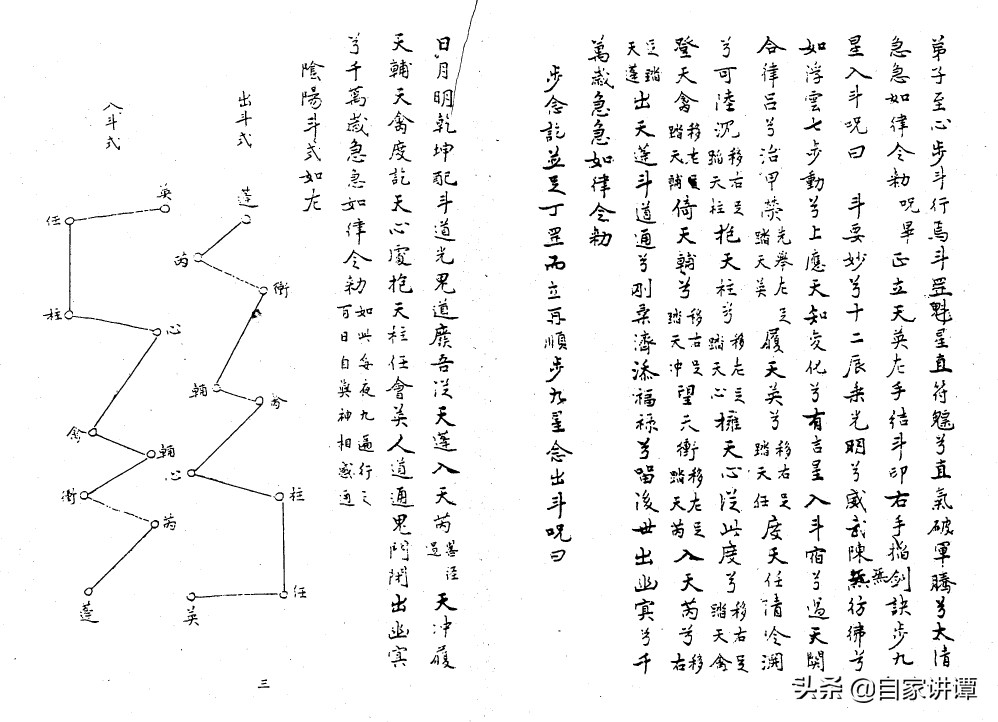 弟子至心步斗行焉斗罡魁星直符魁兮直氣破軍騰兮太清
急急如律令勅 呪畢正立天英左手結斗印右手掐劍訣步九
星入斗呪曰 斗要妙兮十二辰乘光明兮威武陳無彷彿兮
如浮雲七步動兮上應天知變化兮有吉星入斗宿兮過天關
合律呂兮治甲榮先舉左足踏天英履天英兮移右足踏天任度天任清冷淵
兮可陸沉移右足踏天柱抱天柱兮移左足踏天心擁天心從此度兮移右足踏天禽
登天禽移左足踏天輔倚天輔兮移右足踏天冲望天衝移左足踏天芮入天芮兮移右
足踏天蓬出天蓬斗道通兮剛柔濟添福祿兮留後世出幽冥兮千
萬歲急急如律令勅
步念訖並足丁罡而立再順步九星念出斗呪曰
日月明乾坤配斗道光鬼道廢吾從天蓬入天芮天冲履
天輔天禽度訖天心處抱天柱任會英人道通鬼門閉出幽冥
兮千萬歲急急如律令勅如此每夜九遍行之百日自與神相感通
陰陽斗式如左
出斗式
蓬
芮
衝
輔
禽
心
柱
任
英
入斗式
英
任
柱
心
禽
輔
衝
芮
蓬
三
头条 @自家讲谭